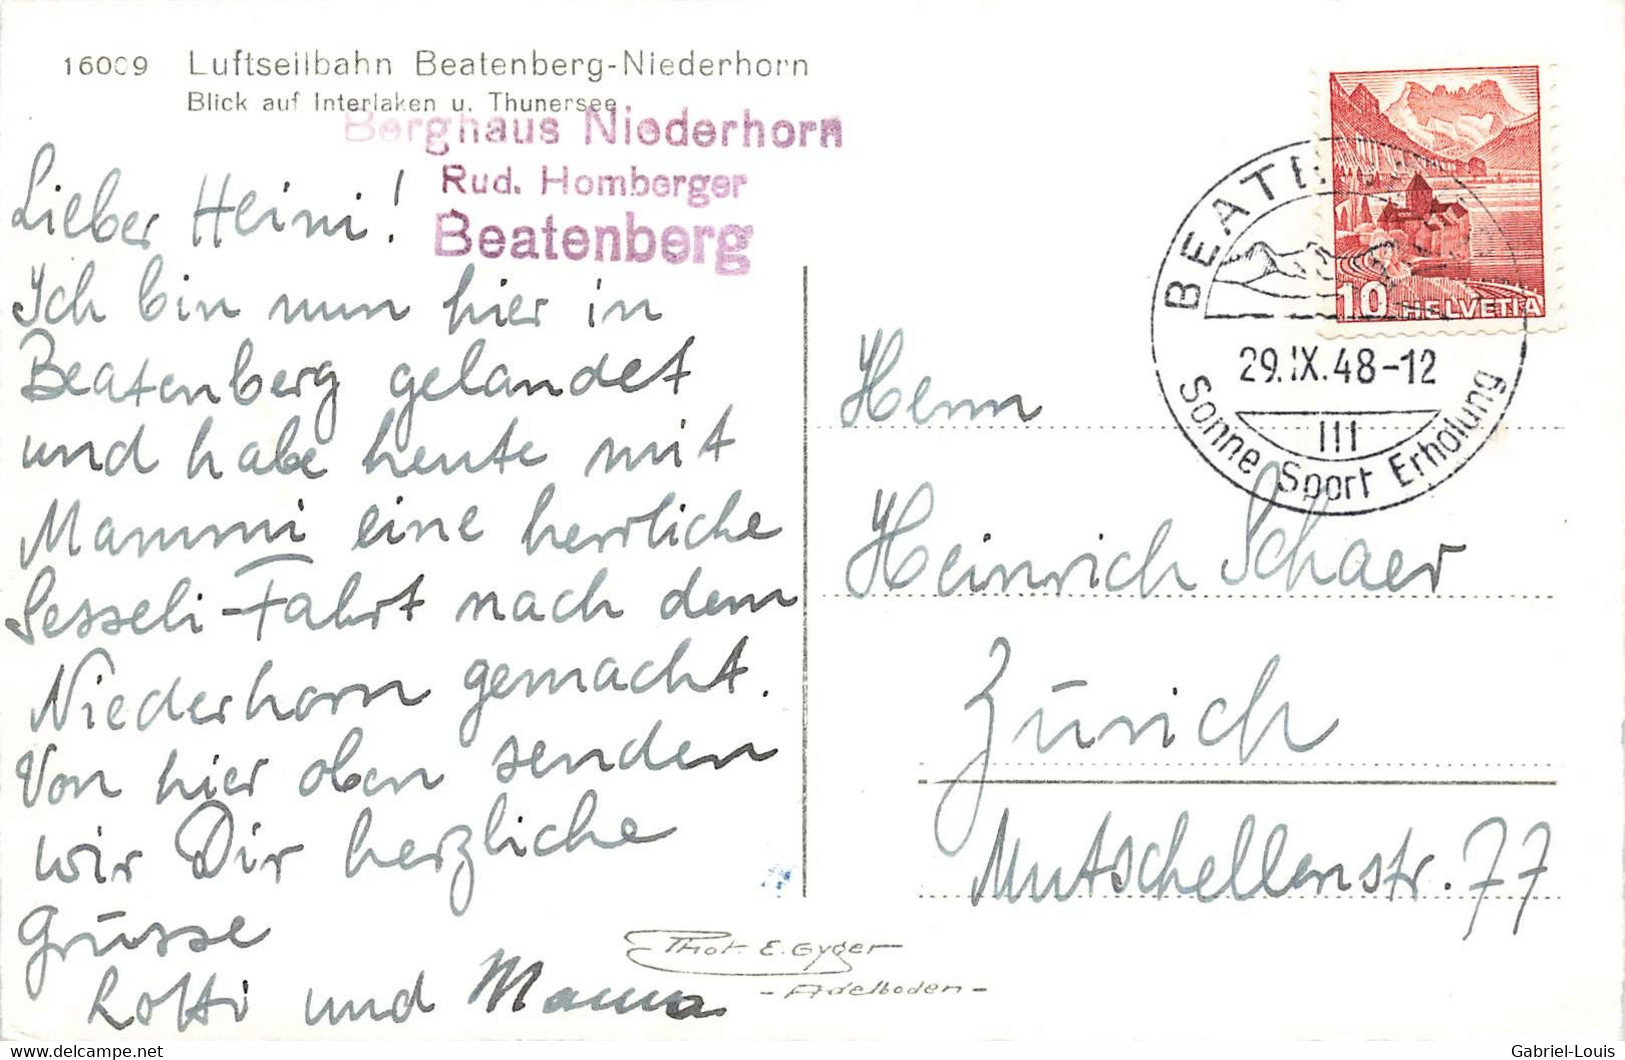 16009 Luftseilbahn Beatenberg-Niederhorn
Blick auf Interlaken u. Thunersee
Berghaus Niederhorn
Rud. Homberger
Beatenberg
Lieber Heini!
Ich bin nun hier in
Beatenberg gelandet
und habe heute mit
Mammi eine herrliche
Sesseli-Fahrt nach dem
Niederhorn gemacht.
Von hier oben senden
wir Dir herzliche
Grüsse
Lotti und Mama
10 HELVETIA
BEATENBERG
29.IX.48-12
III
Sonne Sport Erholung
Herrn
Heinrich Schaer
Zürich
Mutschellenstr. 77
Phot. E. Gyger
- Adelboden -
delcampe.net
Gabriel-Louis